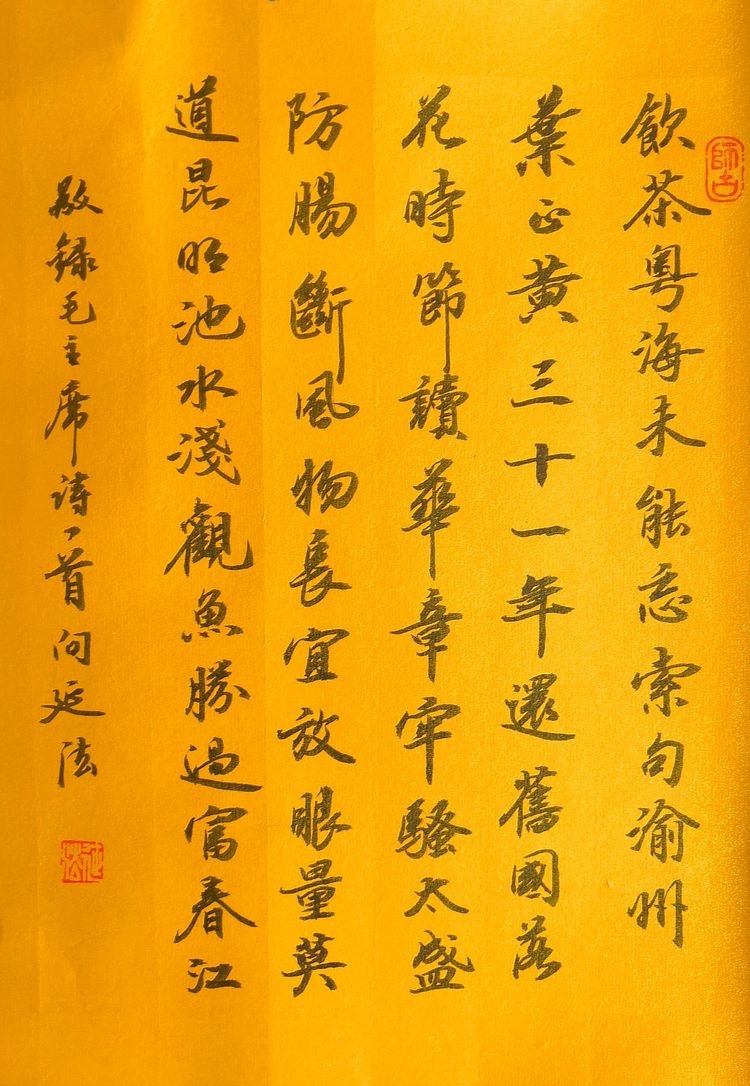 師古
飲茶粵海未能忘索句渝州
葉正黃三十一年還舊國落
花時節讀華章牢騷太盛
防腸斷風物長宜放眼量莫
道昆明池水淺觀魚勝過富春江
敬錄毛主席詩一首向延法
延法